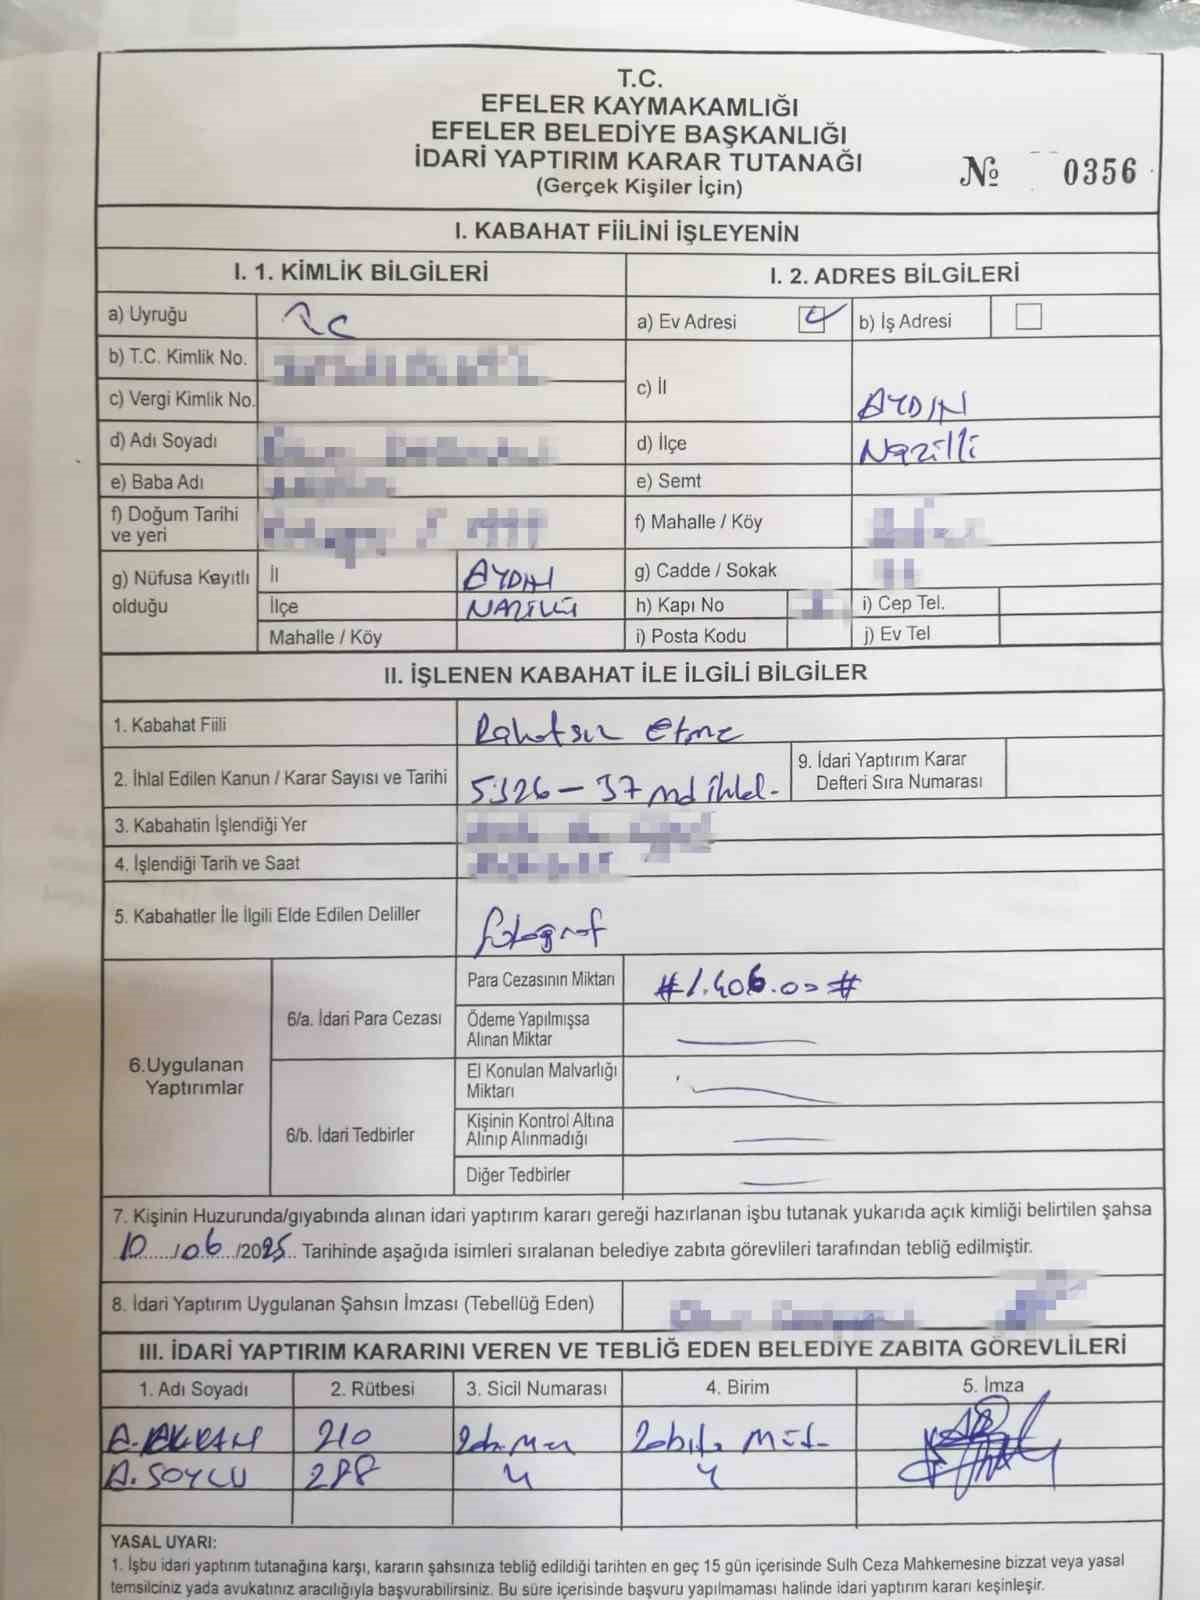 T.C.
EFELER KAYMAKAMLIĞI
EFELER BELEDİYE BAŞKANLIĞI
İDARİ YAPTIRIM KARAR TUTANAĞI
(Gerçek Kişiler İçin)
№ 0356
I. KABAHAT FİİLİNİ İŞLEYENİN
I. 1. KİMLİK BİLGİLERİ
I. 2. ADRES BİLGİLERİ
a) Uyruğu TC
a) Ev Adresi
b) İş Adresi
b) T.C. Kimlik No.
c) Vergi Kimlik No.
c) İl AYDIN
d) Adı Soyadı
d) İlçe Nazilli
e) Baba Adı
e) Semt
f) Doğum Tarihi
ve yeri
f) Mahalle / Köy
g) Nüfusa Kayıtlı
olduğu
İl AYDIN
g) Cadde / Sokak
İlçe NAZİLLİ
h) Kapı No
i) Cep Tel.
Mahalle / Köy
i) Posta Kodu
j) Ev Tel
II. İŞLENEN KABAHAT İLE İLGİLİ BİLGİLER
1. Kabahat Fiili Rahatsız Etme
2. İhlal Edilen Kanun / Karar Sayısı ve Tarihi 5326 - 37 md ihlal.
9. İdari Yaptırım Karar
Defteri Sıra Numarası
3. Kabahatin İşlendiği Yer
4. İşlendiği Tarih ve Saat
5. Kabahatler İle İlgili Elde Edilen Deliller fotograf
6.Uygulanan
Yaptırımlar
6/a. İdari Para Cezası
Para Cezasının Miktarı #1.406.00#
Ödeme Yapılmışsa
Alınan Miktar
6/b. İdari Tedbirler
El Konulan Malvarlığı
Miktarı
Kişinin Kontrol Altına
Alınıp Alınmadığı
Diğer Tedbirler
7. Kişinin Huzurunda/gıyabında alınan idari yaptırım kararı gereği hazırlanan işbu tutanak yukarıda açık kimliği belirtilen şahsa
10 /06 /2025 Tarihinde aşağıda isimleri sıralanan belediye zabıta görevlileri tarafından tebliğ edilmiştir.
8. İdari Yaptırım Uygulanan Şahsın İmzası (Tebellüğ Eden)
III. İDARİ YAPTIRIM KARARINI VEREN VE TEBLİĞ EDEN BELEDİYE ZABITA GÖREVLİLERİ
1. Adı Soyadı
2. Rütbesi
3. Sicil Numarası
4. Birim
5. İmza
210 Zabıta Müd.
A. SOYLU 288
YASAL UYARI:
1. İşbu idari yaptırım tutanağına karşı, kararın şahsınıza tebliğ edildiği tarihten en geç 15 gün içerisinde Sulh Ceza Mahkemesine bizzat veya yasal
temsilciniz yada avukatınız aracılığıyla başvurabilirsiniz. Bu süre içerisinde başvuru yapılmaması halinde idari yaptırım kararı keşinleşir.